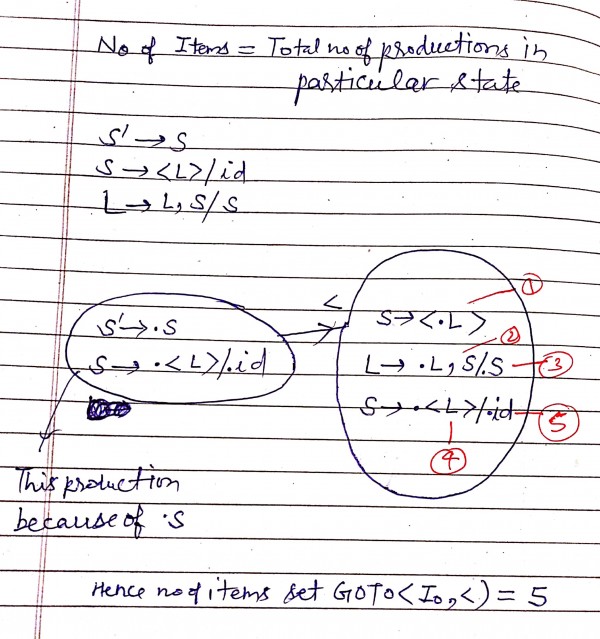 No of Items = Total no of productions in
particular state
S' → S
S → <L> / id
L → L, S / S
<
S' → .S
S → .<L> /.id
S → <.L> ①
L → .L, S/.S ② ③
S → .<L>/.id ④ ⑤
This production
because of .S
Hence no of items set GOTO<I₀,<) = 5